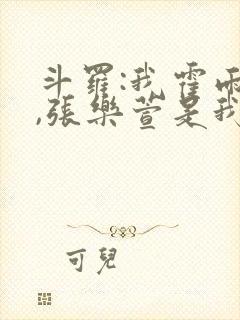 斗羅:我霍雨
,張樂萱是我
可兒